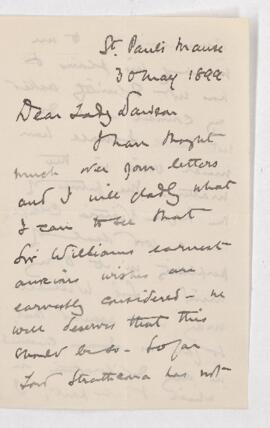 St. Pauls Manse
30 May 1899
Dear Lady Dawson
I have thought
much over your letters
and I will gladly what
I can to see that
Sir Williams earnest
anxious wishes are
earnestly considered - he
well deserves that this
should be so - So far
Lord Strathcona has not